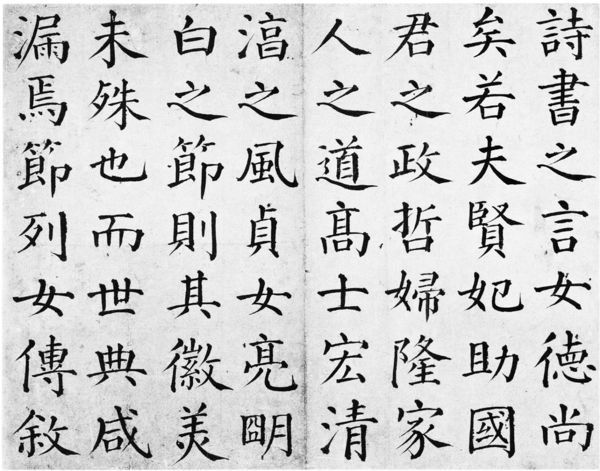 詩書之言女德尚
矣若夫賢妃助國
君之政哲婦隆家
人之道髙士宏清
湻之風貞女亮朙
白之節則其徽美
未殊也而世典咸
漏焉節列女傳敘